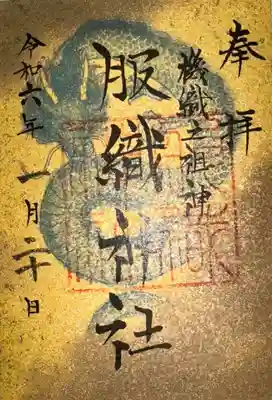 奉拝
機織之祖神
服織神社
令和六年 一月二十日